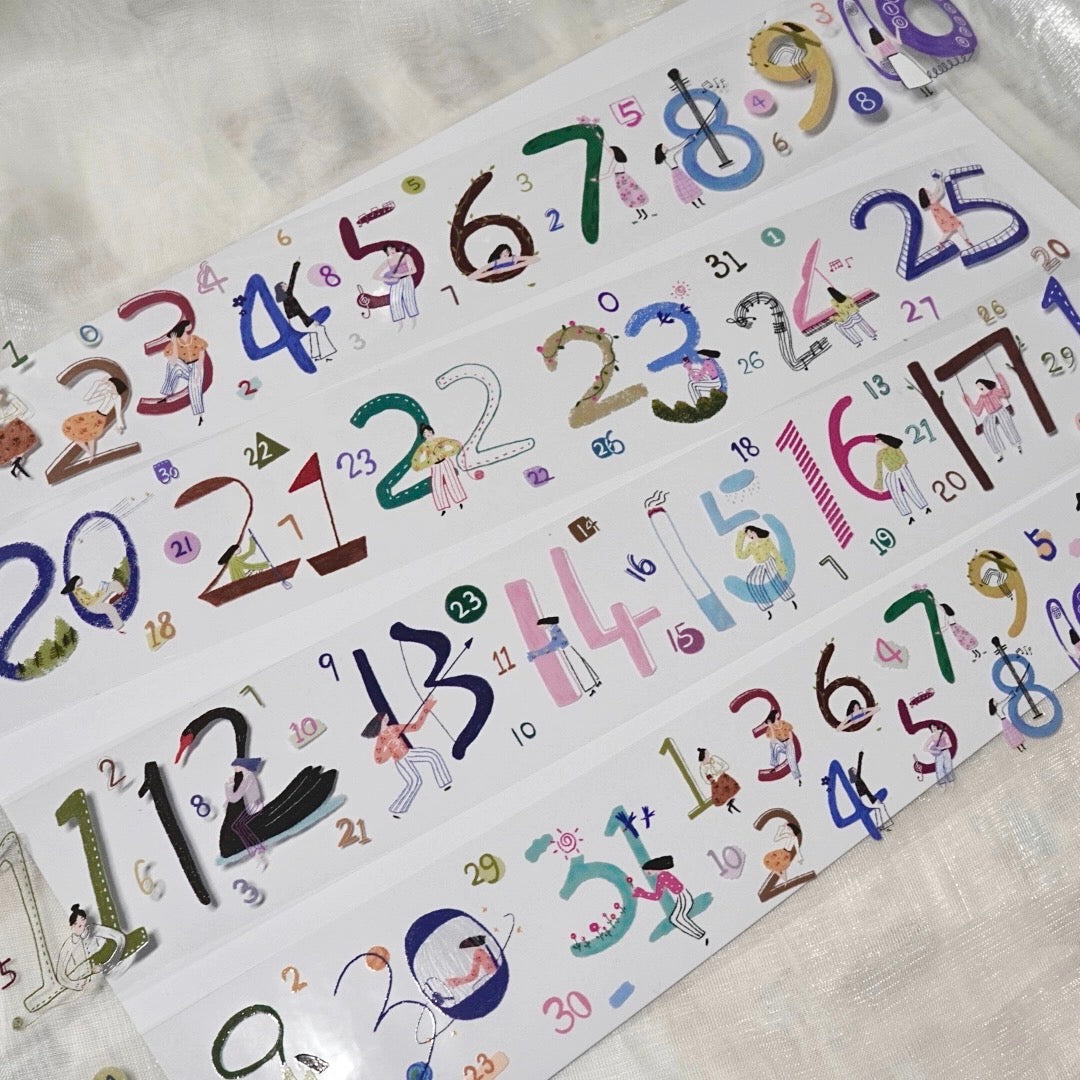 1 6 2 3 4 4 2 6 5 8 3 5 7 6 3 2 7 5 8 4 6 9 3 8 10
20 30 21 18 22 21 7 23 22 22 0 26 23 31 26 1 24 25 27 20
11 2 12 6 8 7 3 10 9 21 13 11 23 10 14 14 16 15 18 15 16 13 7 19 21 20 17 26 29 1
9 2 29 30 23 31 30 1 10 2 3 6 4 4 5 7 9 8 5 10
5
1